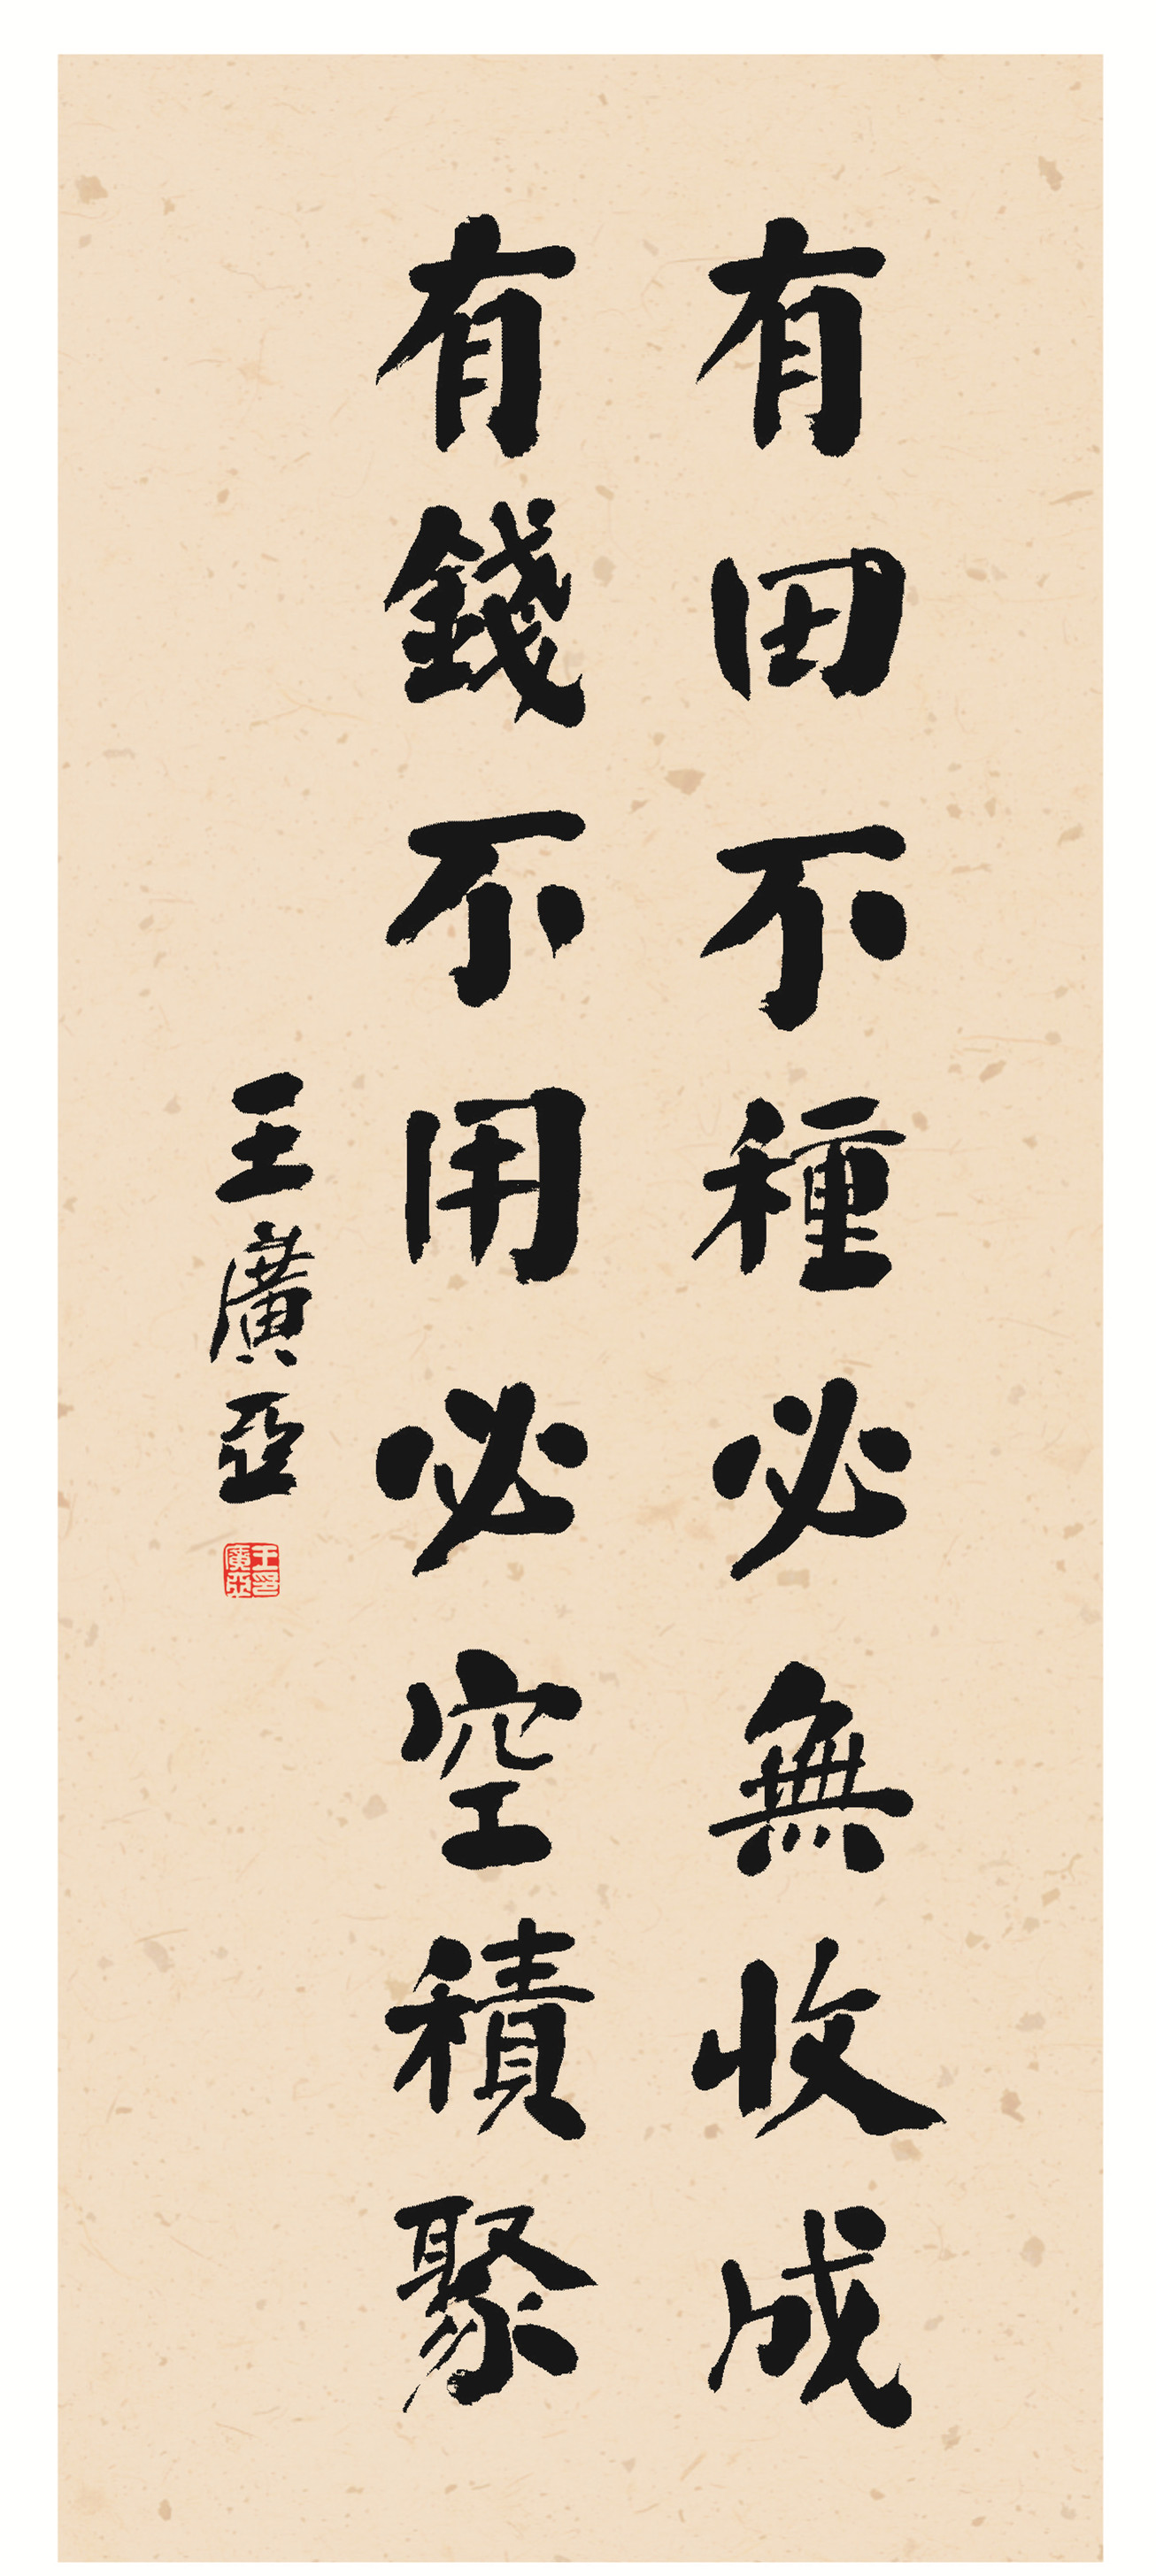 有田不種必無收成
有錢不用必空積聚
王廣亞
王印廣亞